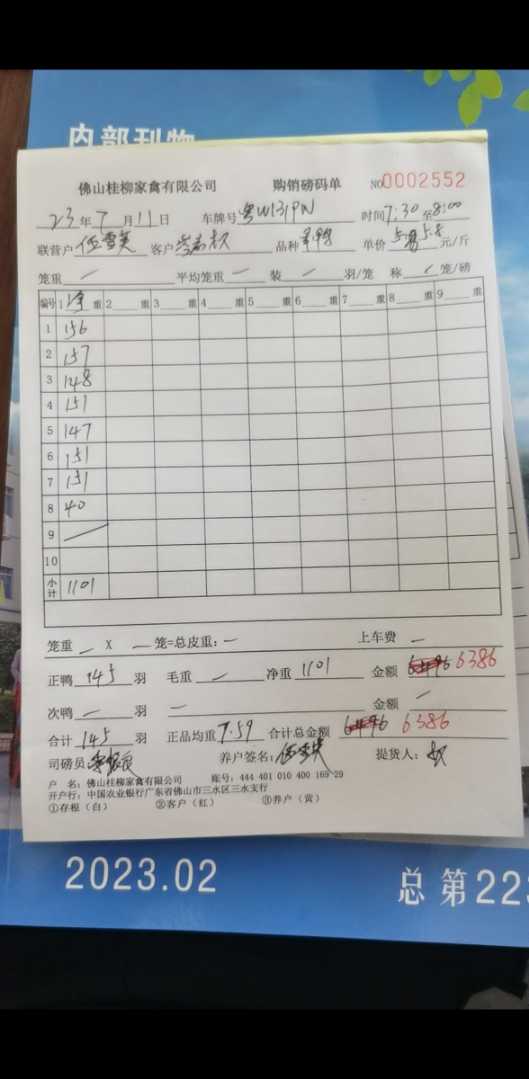 内部刊物
佛山桂柳家禽有限公司 购销磅码单 NO0002552
23年7月11日 车牌号 粤W131PN 时间7:30至8:00
联营户 客户 品种 单价 5.8 元/斤
笼重 — 平均笼重 — 装 — 羽/笼 称 — 笼/磅
编号 1 净 重 2 重 3 重 4 重 5 重 6 重 7 重 8 重 9 重
1 156
2 157
3 148
4 151
5 147
6 151
7 151
8 40
9 —
10
小计 1101
笼重 — X — 笼=总皮重: — 上车费 —
正鸭 145 羽 毛重 — 净重 1101 金额 6386
次鸭 — 羽 — 金额 —
合计 145 羽 正品均重 7.59 合计总金额 6386
司磅员: 养户签名: 提货人:
户 名: 佛山桂柳家禽有限公司 账号: 444 401 010 400 169 29
开户行: 中国农业银行广东省佛山市三水区三水支行
①存根（白） ②客户（红） ③养户（黄）
2023.02 总第223